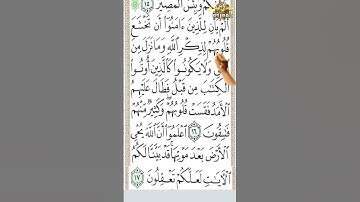 كُمْ وَبِئْسَ ٱلْمَصِيرُ ١٥
أَلَمْ يَأْنِ لِلَّذِينَ ءَامَنُوٓا۟ أَن تَخْشَعَ
قُلُوبُهُمْ لِذِكْرِ ٱللَّهِ وَمَا نَزَلَ مِنَ
وَلَا يَكُونُوا۟ كَٱلَّذِينَ أُوتُوا۟
ٱلْكِتَـٰبَ مِن قَبْلُ فَطَالَ عَلَيْهِمُ
ٱلْأَمَدُ فَقَسَتْ قُلُوبُهُمْ ۖ وَكَثِيرٌ مِّنْهُمْ
فَـٰسِقُونَ ١٦ ٱعْلَمُوٓا۟ أَنَّ ٱللَّهَ يُحْىِ
ٱلْأَرْضَ بَعْدَ مَوْتِهَا ۚ قَدْ بَيَّنَّا لَكُمُ
ٱلْـَٔايَـٰتِ لَعَلَّكُمْ تَعْقِلُونَ ١٧